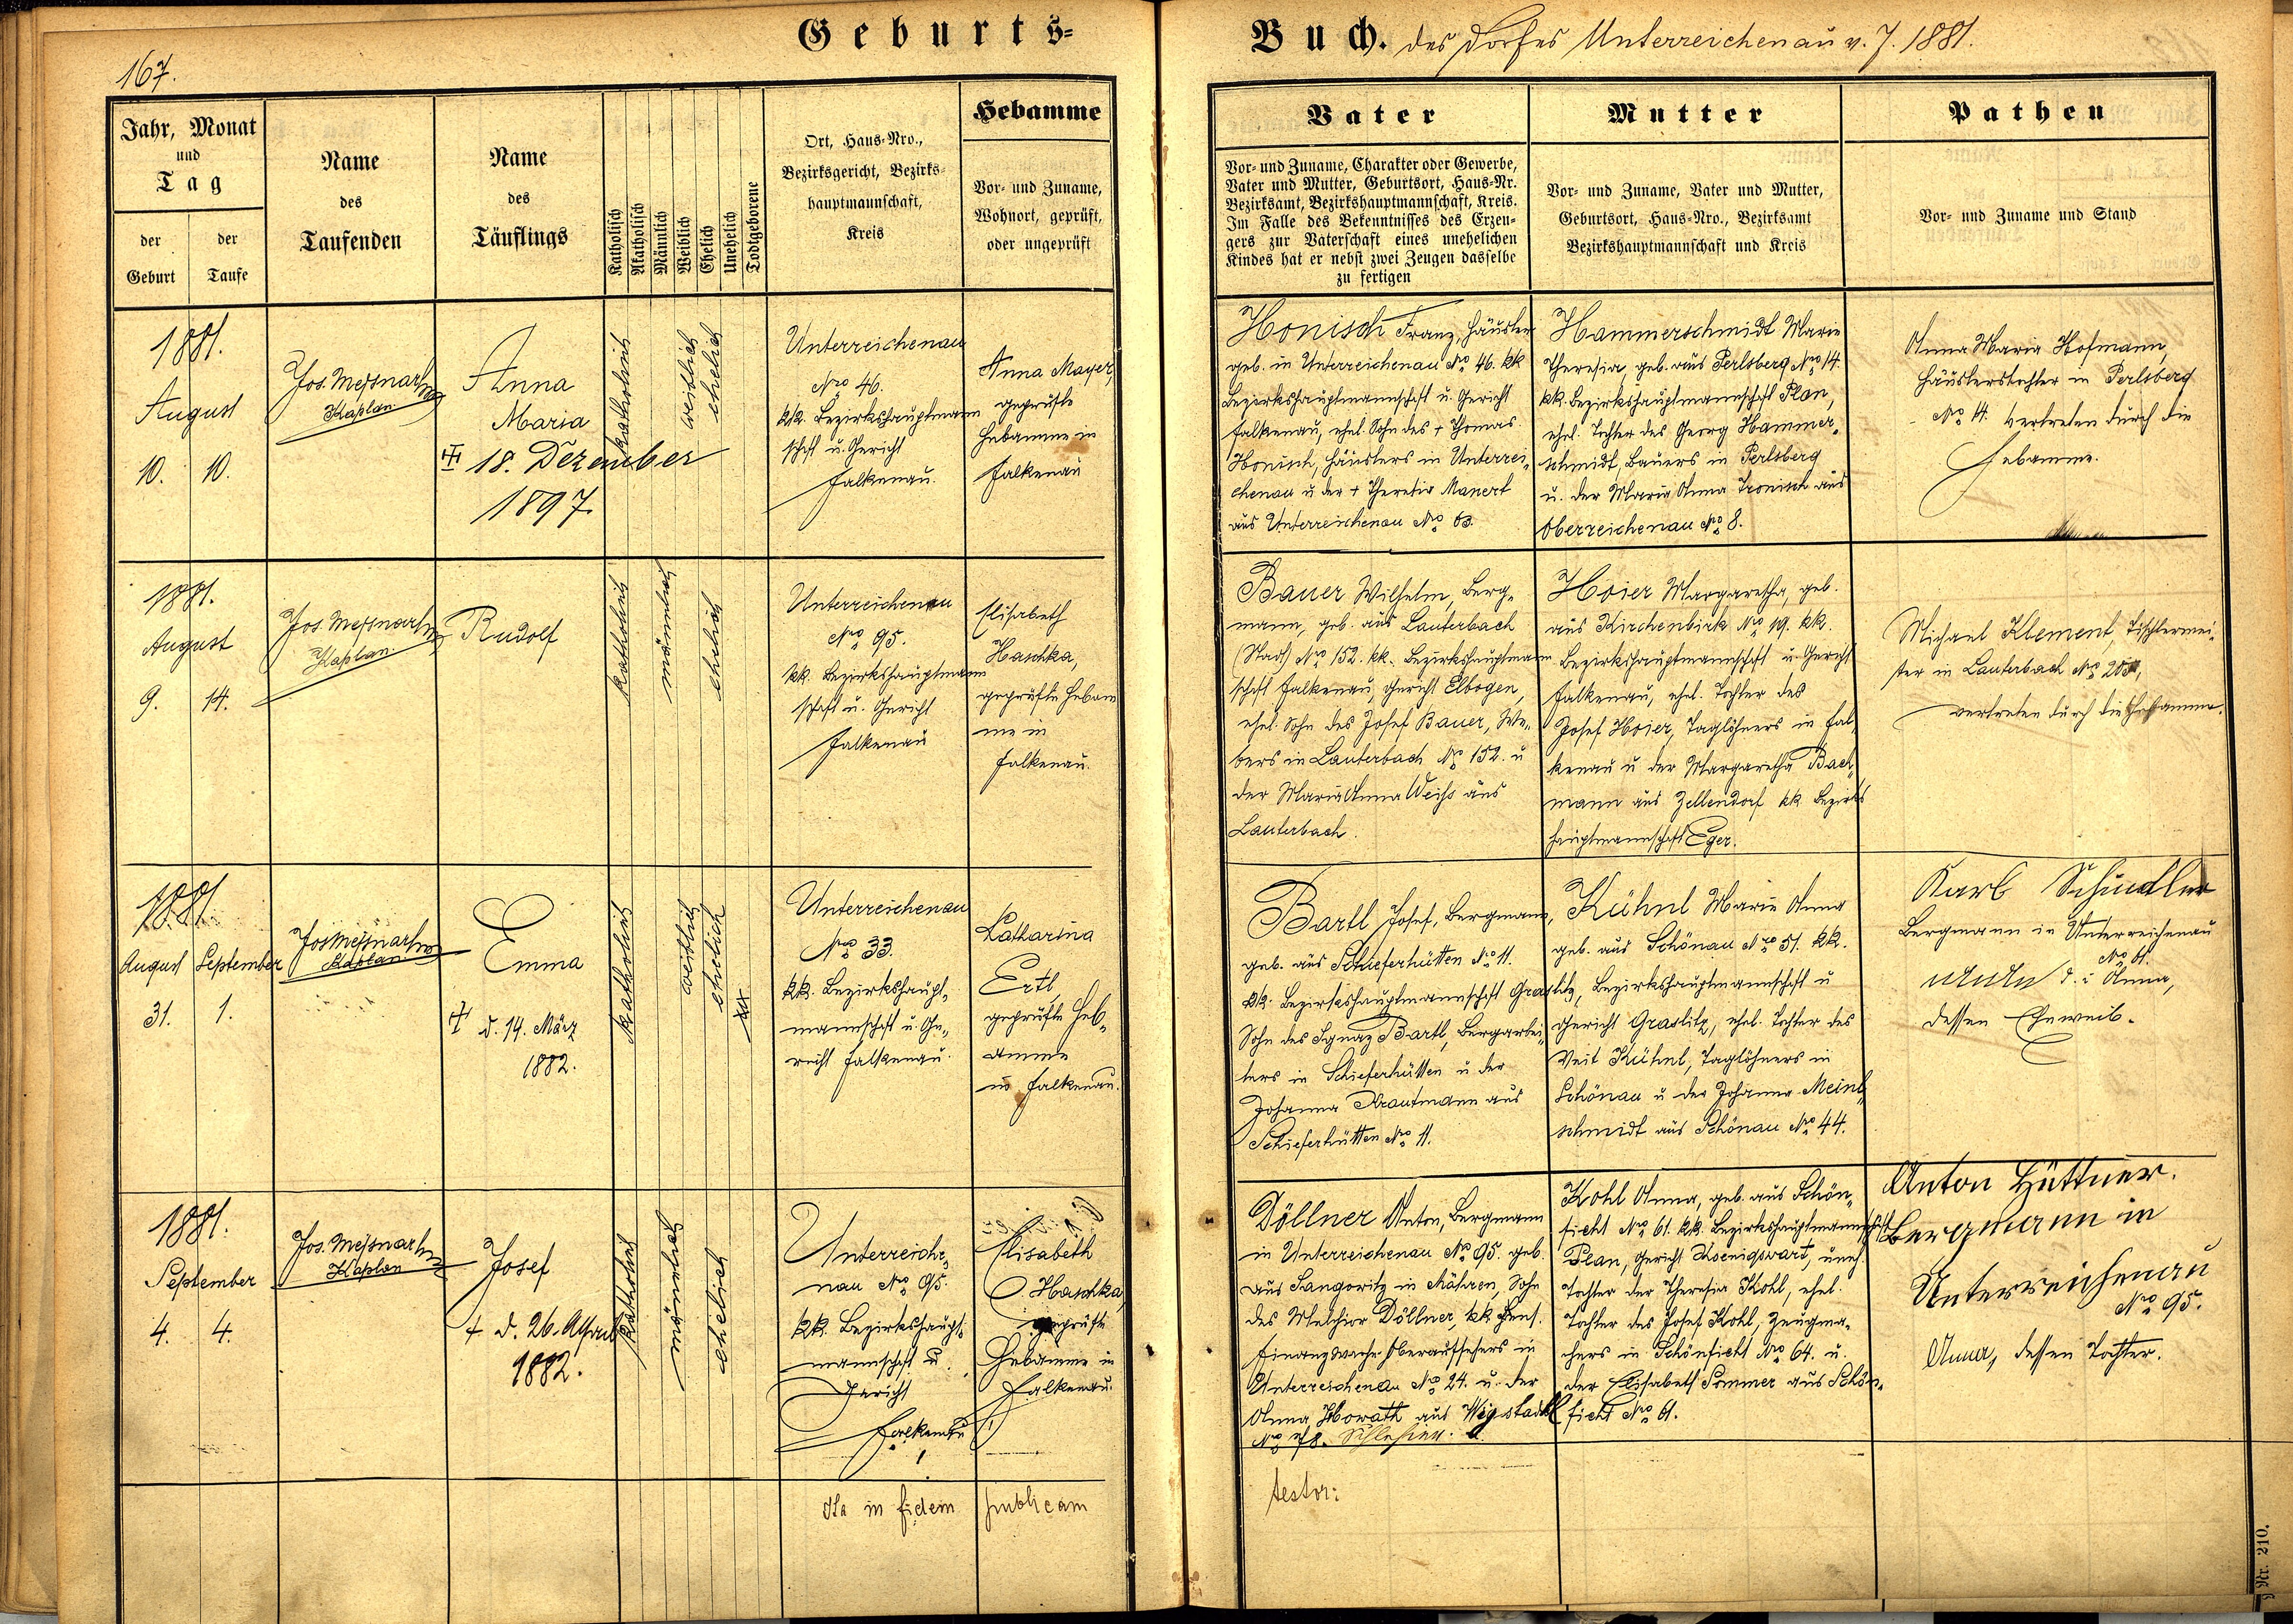 Geburts-
Buch. des Dorfes Unterreichenau v. J. 1881.
167.
Jahr, Monat
und
Tag
der
Geburt
der
Taufe
Name
des
Taufenden
Name
des
Täuflings
Katholisch
Akatholisch
Männlich
Weiblich
Ehelich
Unehelich
Todtgeborene
Ort, Haus-Nro.,
Bezirksgericht, Bezirks-
hauptmannschaft,
Kreis
Hebamme
Vor- und Zuname,
Wohnort, geprüft,
oder ungeprüft
Vater
Vor- und Zuname, Charakter oder Gewerbe,
Vater und Mutter, Geburtsort, Haus-Nr.
Bezirksamt, Bezirkshauptmannschaft, Kreis.
Im Falle des Bekenntnisses des Erzeu-
gers zur Vaterschaft eines unehelichen
Kindes hat er nebst zwei Zeugen dasselbe
zu fertigen
Mutter
Vor- und Zuname, Vater und Mutter,
Geburtsort, Haus-Nro., Bezirksamt
Bezirkshauptmannschaft und Kreis
Pathen
Vor- und Zuname und Stand
1881.
August
10. 10.
Jos.
Kaplan
Anna
Maria
18. Dezember
1897
katholisch
weiblich
ehelich
Unterreichenau
Nro 46.
kk. Bezirkshauptmann
schaft u. Gericht
Falkenau.
Anna Mayer,
geprüfte
Hebamme in
Falkenau
Honisch Franz, Häusler
geb. in Unterreichenau No 46. kk
Bezirkshauptmannschaft u. Gericht
Falkenau, ehel. Sohn des + Thomas
Honisch, Häuslers in Unterrei-
chenau u. der + Theresia Manert
aus Unterreichenau No
Hammerschmidt Marie
Theresia, geb. aus Perlsberg Nro 14.
kk. Bezirkshauptmannschaft Plan,
ehel. Tochter des Georg Hammer-
schmidt, Bauers in Perlsberg
u. der Maria Anna Tronisch aus
Oberreichenau No 8.
Anna Maria Hofmann,
Häuslerstochter in Perlsberg
No 14. vertreten durch die
Hebamme.
1881.
August
9. 14.
Jos.
Kaplan
Rudolf
katholisch
männlich
ehelich
Unterreichenau
Nro 95.
kk. Bezirkshauptmann
schaft u. Gericht
Falkenau
Elisabeth
Haschka,
geprüfte Hebam
me in
Falkenau.
Bauer Wilhelm, Berg-
mann, geb. aus Lauterbach
(Stadt) Nro 152. kk. Bezirkshauptmann
schaft Falkenau, Gericht Elbogen,
ehel. Sohn des Josef Bauer, We-
bers in Lauterbach No 152. u
der Maria Anna Weiss aus
Lauterbach.
Hoier Margaretha, geb.
aus Kirchenbirk No 19. kk.
Bezirkshauptmannschaft u. Gericht
Falkenau, ehel. Tochter des
Josef Hoier, Taglöhners in Fal-
kenau u der Margaretha Bach-
mann aus Zellendorf kk Bezirks
hauptmannschaft Eger.
Michael Klement, Tischlermei-
ster in Lauterbach Nro
vertreten durch die Hebamme.
1881.
August September
31. 1.
Jos
Kaplan
Emma
d. 14. März
1882.
katholisch
weiblich
ehelich
Unterreichenau
Nro 33.
kk. Bezirkshaupt-
mannschaft u. Ge-
richt Falkenau.
Katharina
Ertl,
geprüfte Heb-
amme
in Falkenau.
Bartl Josef, Bergmann,
geb. aus Schieferhütten No 11.
kk. Bezirkshauptmannschaft Graslitz,
Sohn des Ignaz Bartl, Bergarbei-
ters in Schieferhütten u der
Johanna Krautmann aus
Schieferhütten No 11.
Kühnl Marie Anna
geb. aus Schönau Nro 51. kk.
Bezirkshauptmannschaft u
Gericht Graslitz, ehel. Tochter des
Veit Kühnl, Taglöhners in
Schönau u der Johanna Meinl-
schmidt aus Schönau Nro 44.
Karl Schindler
Bergmann in Unterreichenau
No 61.
Anna,
dessen Eheweib.
1881.
September
4. 4.
Jos.
Kaplan
Josef
+ d. 26. April
1882.
katholisch
männlich
ehelich
Unterreiche-
nau Nro 95.
kk. Bezirkshaupt-
mannschaft u.
Gericht
Falkenau
Elisabeth
Haschka,
geprüfte
Hebamme in
Falkenau.
Döllner Anton, Bergmann
in Unterreichenau No 95. geb.
aus Langoritz in Mähren, Sohn
des Melchior Döllner, kk Pens.
Finanzwache Oberaufsehers in
Unterreichenau No 24. u. der
Anna Howath aus Wigstadtl
No 78. Schlesien.
Kohl Anna, geb. aus Schön-
ficht No 61. kk. Bezirkshauptmannschaft
Plan, Gericht Koenigswart, uneh.
Tochter der Theresia Kohl, ehel.
Tochter des Josef Kohl, Zeugma-
chers in Schönficht No 64. u.
der Elisabeth Sommer aus Schön-
ficht No 61.
Anton Hüttner.
Bergmann in
Unterreichenau
Nro 95.
Anna, dessen Tochter.
Ita in fidem publicam
testor:
Nr. 210.